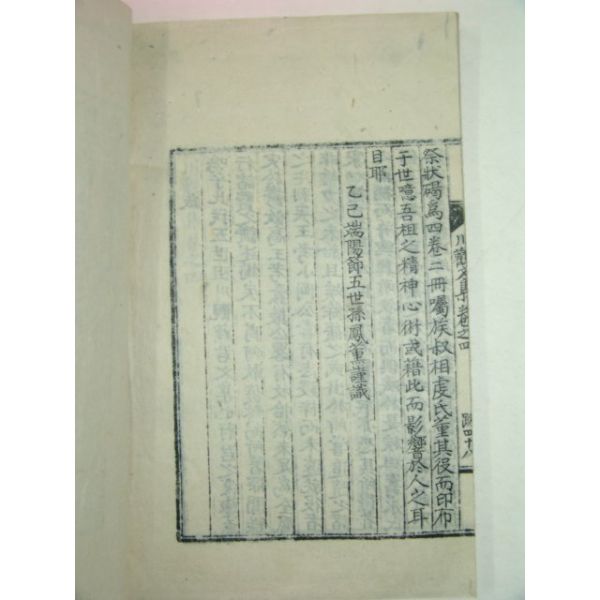 祭狀碣爲四卷二冊囑族叔相虔氏董其役而印布
于世噫吾祖之精神心術或藉此而影響於人之耳
目耶
乙巳端陽節五世孫鳳薰謹識
川觀文集卷之四
跋 四十八